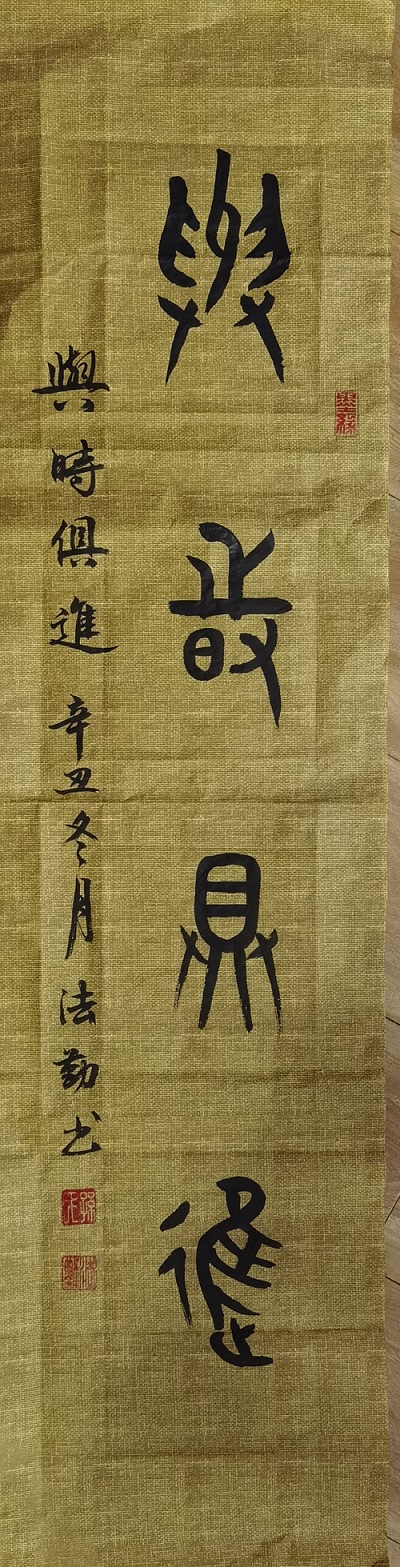 與時俱進
與時俱進 辛丑冬月 法勤书